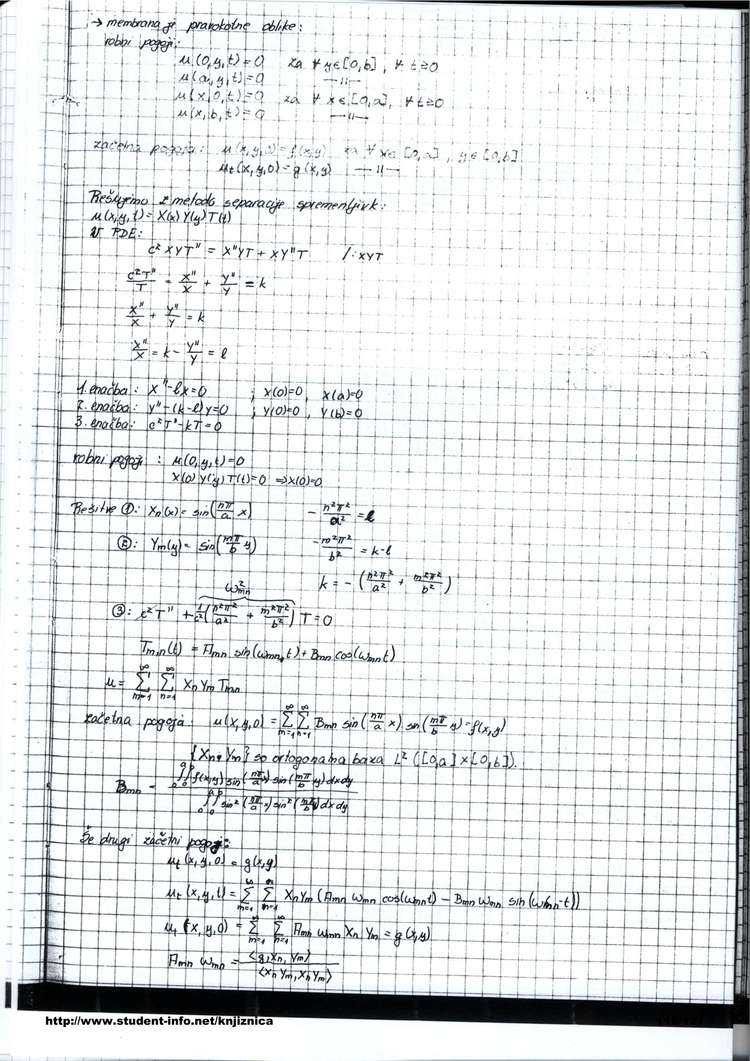 → membrana je pravokotne oblike:
robni pogoji:
u(0,y,t)=0 za ∀ y∈[0,b], ∀ t≥0
u(a,y,t)=0 —11—
u(x,0,t)=0 za ∀ x∈[0,a], ∀ t≥0
u(x,b,t)=0 —11—
začetna pogoja: u(x,y,0)=f(x,y) za ∀ x∈[0,a], y∈[0,b]
u_t(x,y,0)=g(x,y) —11—
Rešujemo z metodo separacije spremenljivk:
u(x,y,t)=X(x)Y(y)T(t)
v PDE:
c²XYT'' = X''YT + XY''T /:XYT
c²T''/T = X''/X + Y''/Y = k
X''/X + Y''/Y = k
X''/X = k - Y''/Y = l
1. enačba: X''-lX=0 ; X(0)=0, X(a)=0
2. enačba: Y''-(k-l)Y=0 ; Y(0)=0, Y(b)=0
3. enačba: c²T''-kT=0
robni pogoji: u(0,y,t)=0
X(0)Y(y)T(t)=0 ⇒X(0)=0
Rešitve ①: X_n(x)=sin(nπ/a x) -n²π²/a²=l
②: Y_m(y)=sin(mπ/b y) -m²π²/b²=k-l
k=-(n²π²/a² + m²π²/b²)
ω²_mn
③: c²T''+1/c²(n²π²/a² + m²π²/b²)T=0
T_mn(t)=A_mn sin(ω_mn t)+B_mn cos(ω_mn t)
u=∑_{m=1}^∞ ∑_{n=1}^∞ X_n Y_m T_mn
začetna pogoja: u(x,y,0)=∑_{m=1}^∞ ∑_{n=1}^∞ B_mn sin(nπ/a x) sin(mπ/b y)=f(x,y)
{X_n, Y_m} so ortogonalna baza L²([0,a]×[0,b]).
B_mn = ∫_0^a ∫_0^b f(x,y) sin(nπ/a x) sin(mπ/b y) dxdy / ∫_0^a ∫_0^b sin²(nπ/a x) sin²(mπ/b y) dxdy
Še drugi začetni pogoj:
u_t(x,y,0)=g(x,y)
u_t(x,y,t)=∑_{m=1}^∞ ∑_{n=1}^∞ X_n Y_m (A_mn ω_mn cos(ω_mn t) - B_mn ω_mn sin(ω_mn t))
u_t(x,y,0)=∑_{m=1}^∞ ∑_{n=1}^∞ A_mn ω_mn X_n Y_m = g(x,y)
A_mn ω_mn = ⟨g, X_n, Y_m⟩ / ⟨X_n Y_m, X_n Y_m⟩
http://www.student-info.net/knjiznica